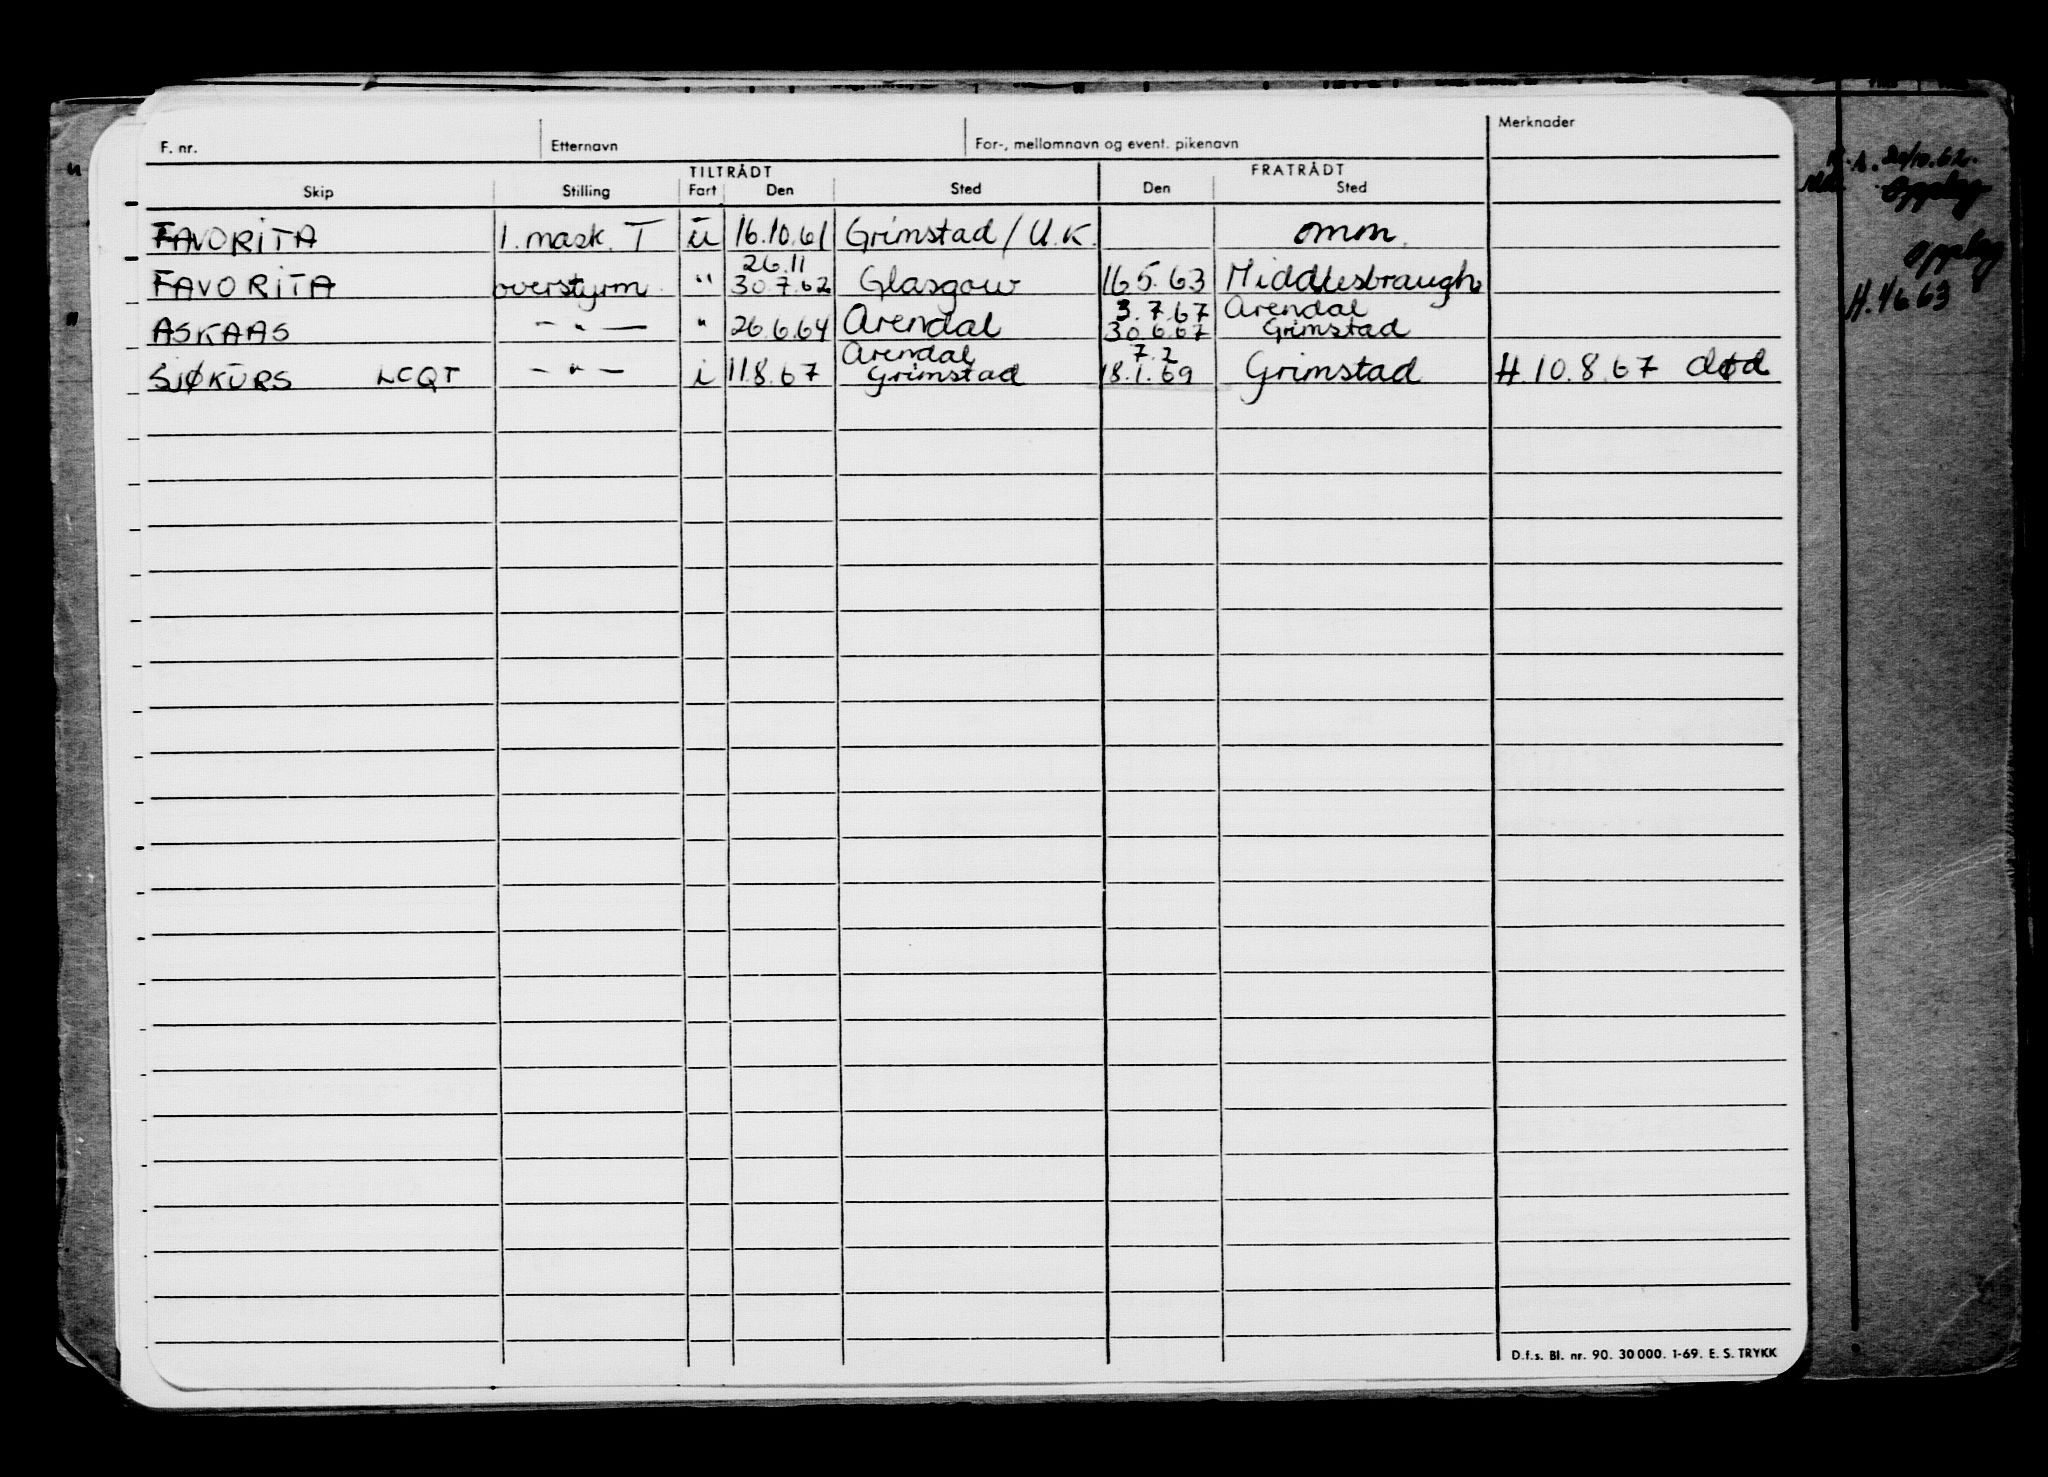 F. nr. Etternavn For-, mellomnavn og event. pikenavn Merknader
TILTRÅDT FRATRÅDT
Skip Stilling Fart Den Sted Den Sted
FAVORITA 1. mask. T ū 16.10.61 Grimstad / U.K. omm.
26.11
FAVORITA overstyrm. " 30.7.62 Glasgow 16.5.63 Middlesbraugh
3.7.67 Arendal
ASKAAS - " - " 26.6.64 Arendal 30.6.67 Grimstad
Arendal 7.2
SJØKURS LCQT - " - i 11.8.67 Grimstad 18.1.69 Grimstad H. 10.8.67 død
D.f.s. Bl. nr. 90. 30 000. 1-69. E. S. TRYKK
"
"
20/10.62.
Opplag
Opplag
H. 4.6.63